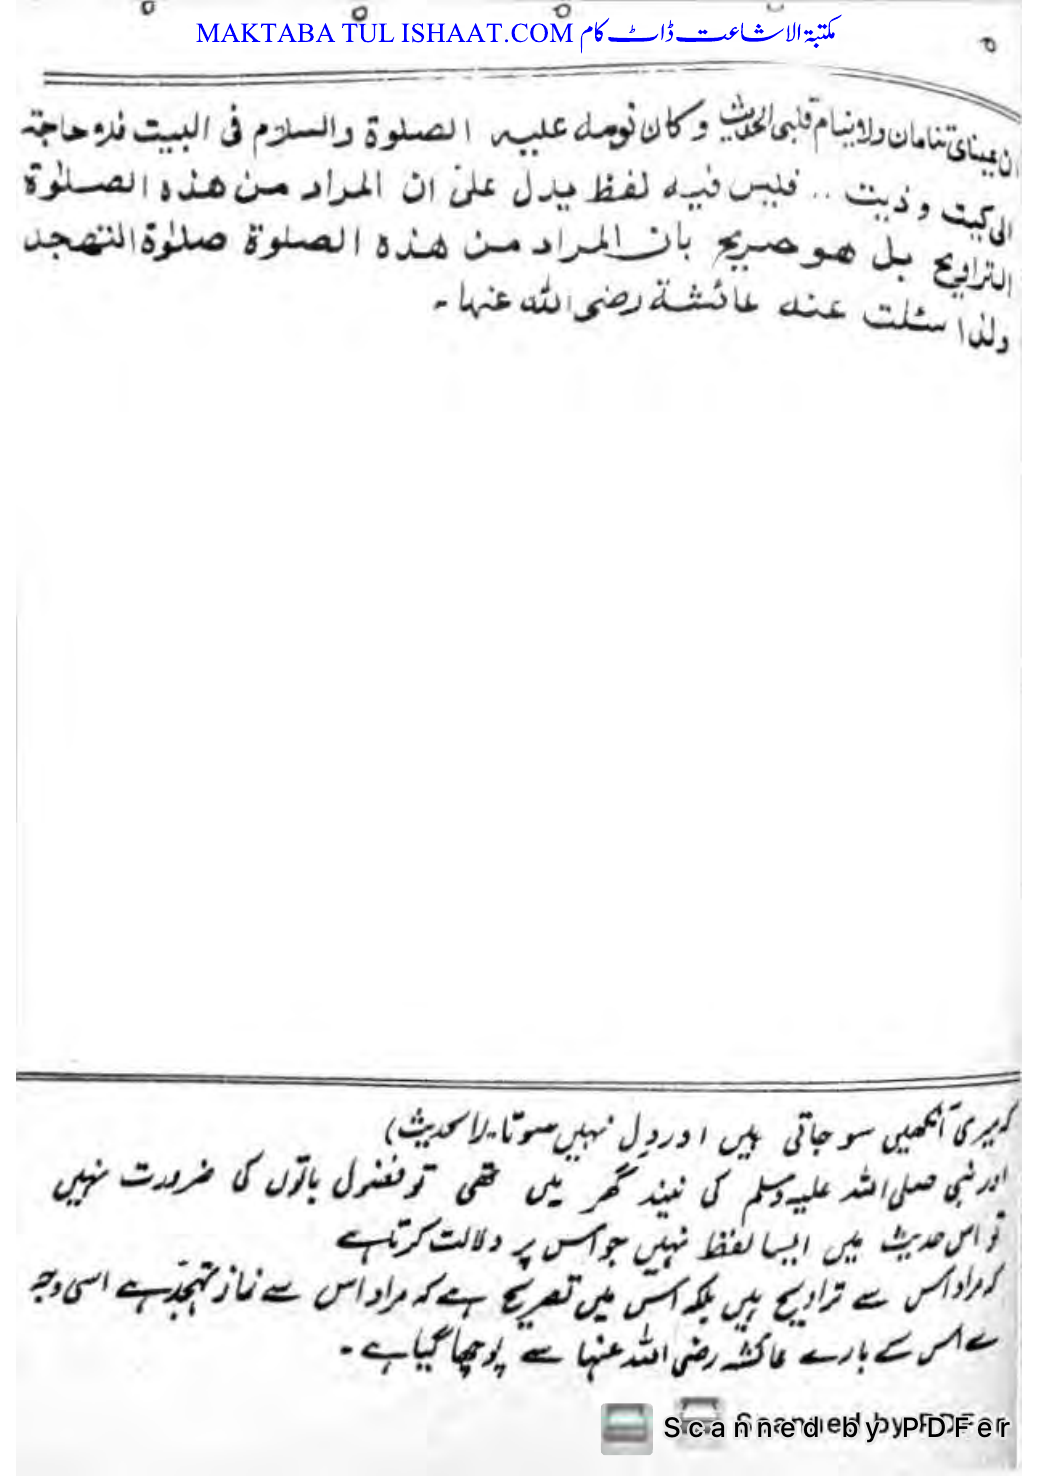 MAKTABA TUL ISHAAT.COM مکتبۃ الاشاعت ڈاٹ کام
۵
ان عینای تنامان ولا ینام قلبی الحدیث وکان نومہ علیہ الصلوۃ والسلام فی البیت فلا حاجۃ
الی کیت و ذیت .. فلیس فیہ لفظ یدل علیٰ ان المراد من ھذہ الصلوٰۃ
التراویح بل ھو صریح بان المراد من ھذہ الصلوۃ صلوٰۃ التہجد
ولذا سئلت عنہ عائشۃ رضی اللہ عنہا۔
کہ میری آنکھیں سو جاتی ہیں اور دل نہیں سوتا۔ (الحدیث)
اور نبی صلی اللہ علیہ وسلم کی نیند گھر میں تھی تو فضول باتوں کی ضرورت نہیں
تو اس حدیث میں ایسا لفظ نہیں جو اس پر دلالت کرتا ہے
کہ مراد اس سے تراویح ہیں بلکہ اس میں تصریح ہے کہ مراد اس سے نماز تہجد ہے اسی وجہ
سے اس کے بارے عائشہ رضی اللہ عنہا سے پوچھا گیا ہے۔
Scanned by PDFer